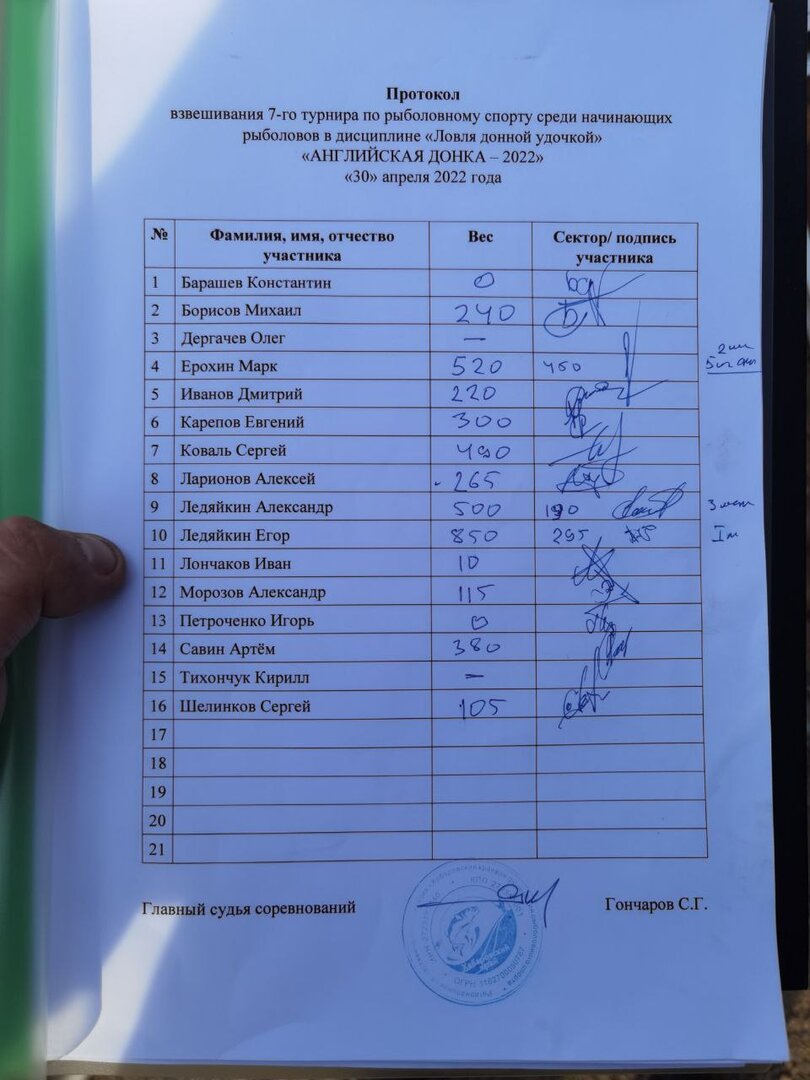 Протокол
взвешивания 7-го турнира по рыболовному спорту среди начинающих
рыболовов в дисциплине «Ловля донной удочкой»
«АНГЛИЙСКАЯ ДОНКА – 2022»
«30» апреля 2022 года
№ Фамилия, имя, отчество участника Вес Сектор/ подпись участника
1 Барашев Константин 0
2 Борисов Михаил 240
3 Дергачев Олег —
4 Ерохин Марк 520 450
5 Иванов Дмитрий 220
6 Карепов Евгений 300
7 Коваль Сергей 490
8 Ларионов Алексей 265
9 Ледяйкин Александр 500 190
10 Ледяйкин Егор 850 295
11 Лончаков Иван 10
12 Морозов Александр 115
13 Петроченко Игорь 0
14 Савин Артём 380
15 Тихончук Кирилл —
16 Шелинков Сергей 105
17
18
19
20
21
Главный судья соревнований Гончаров С.Г.